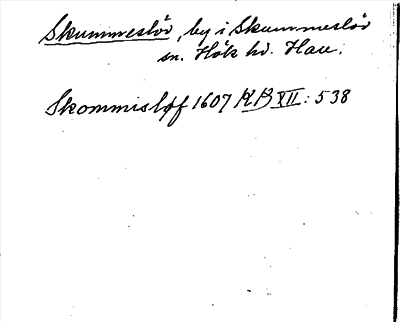 Skummeslöv, by i Skummeslöv
sn. Höks hd. Hall.
Skommisløf 1607 KB XII: 538